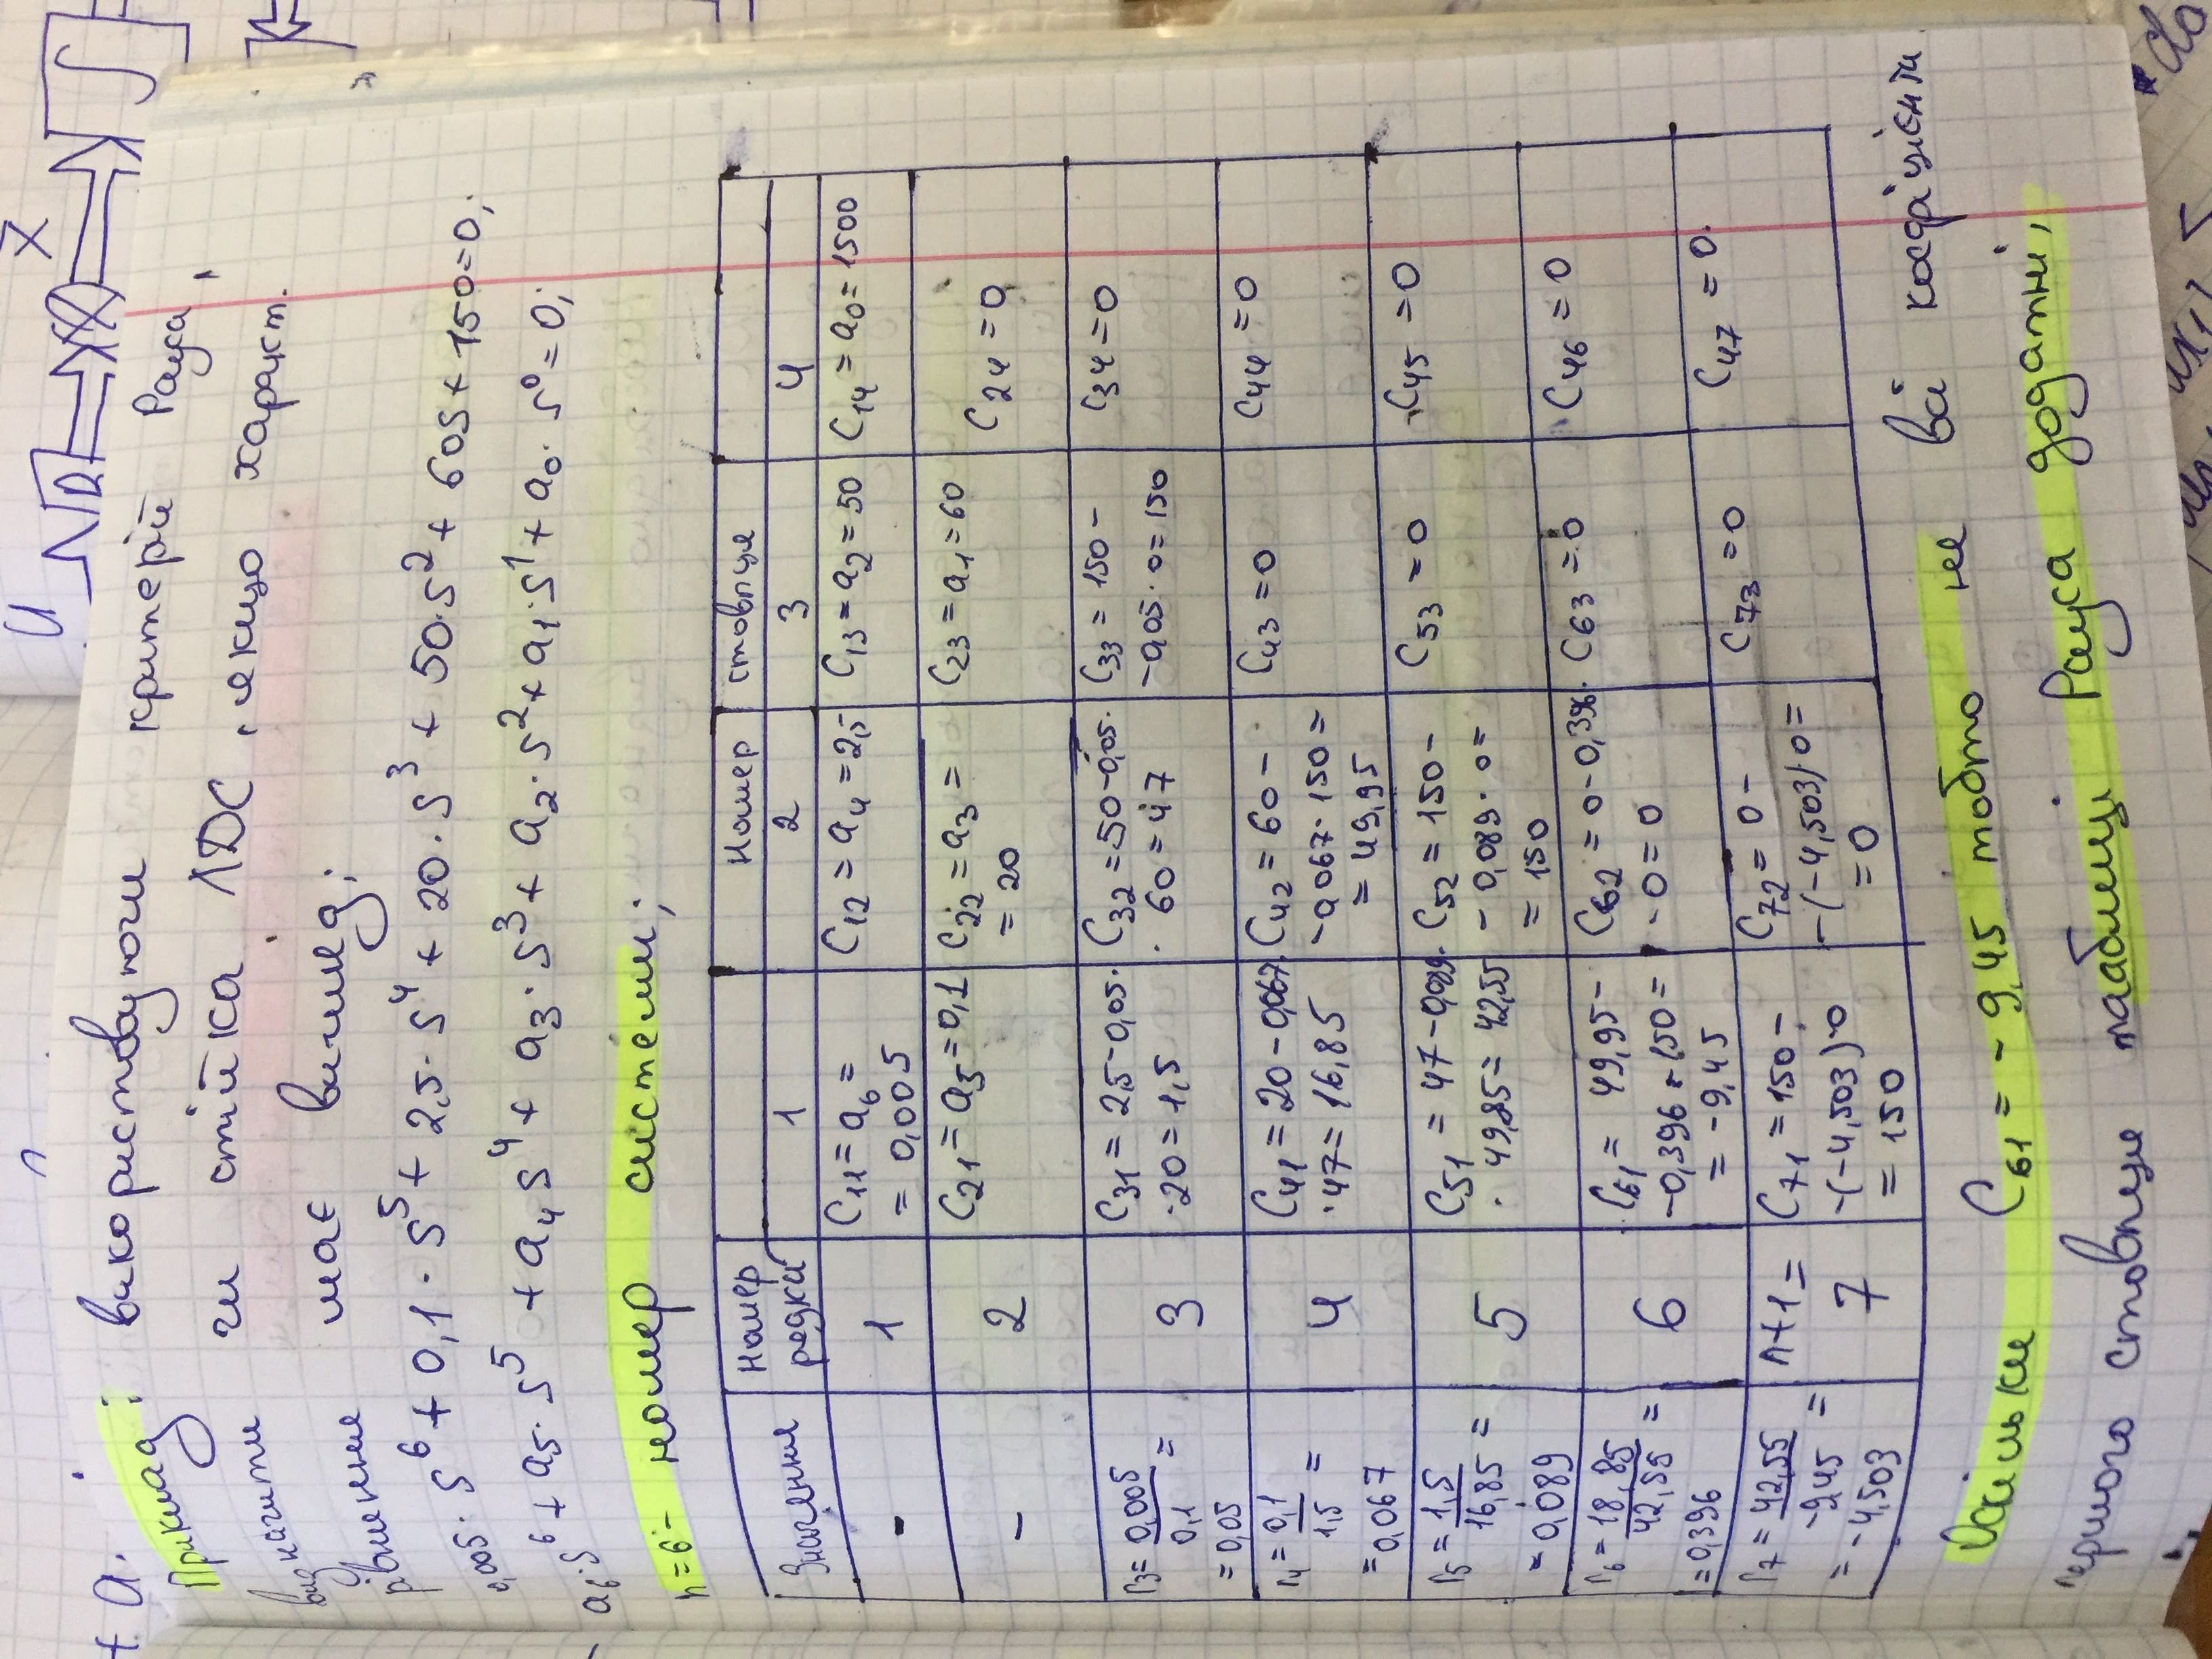 + a.
U
X̄
R
∫
Приклад: використовуючи критерій Рауса,
визначити чи стійка ЛДС, якщо характ.
рівняння має вигляд;
0,005·S⁶ + 0,1·S⁵ + 2,5·S⁴ + 20·S³ + 50·S² + 60S + 150=0;
a₆·S⁶ + a₅·S⁵ + a₄S⁴ + a₃·S³ + a₂·S² + a₁·S¹ + a₀·S⁰ = 0;
n=6 – номер системи;
Значення номер рядка Номер стовпця
1 2 3 4
– 1 C₁₁ = a₆ = = 0,005 C₁₂ = a₄ = 2,5 C₁₃ = a₂ = 50 C₁₄ = a₀ = 1500
– 2 C₂₁ = a₅ = 0,1 C₂₂ = a₃ = = 20 C₂₃ = a₁ = 60 C₂₄ = 0
r₃ = 0,005/0,1 = = 0,05 3 C₃₁ = 2,5-0,05· ·20 = 1,5 C₃₂ = 50-0,05· · 60 = 47 C₃₃ = 150 – -0,05·0=150 C₃₄ = 0
r₄ = 0,1/1,5 = = 0,067 4 C₄₁ = 20-0,067· ·47 = 16,85 C₄₂ = 60 – -0,067·150 = = 49,95 C₄₃ = 0 C₄₄ = 0
r₅ = 1,5/16,85 = = 0,089 5 C₅₁ = 47-0,089· · 49,85 = 42,55 C₅₂ = 150 – - 0,089·0 = = 150 C₅₃ = 0 C₄₅ = 0
r₆ = 18,85/42,55 = = 0,396 6 C₆₁ = 49,95 – -0,396·150 = = -9,45 C₆₂ = 0-0,396· ·0 = 0 C₆₃ = 0 C₄₆ = 0
r₇ = 42,55/-9,45 = = -4,503 n+1 = 7 C₇₁ = 150 – -(-4,503)·0 = 150 C₇₂ = 0 – -(-4,503)·0 = = 0 C₇₃ = 0 C₄₇ = 0
Оскільки C₆₁ = -9,45 тобто не всі коефіцієнти
першого стовпця тааблиці Рауса додатні,